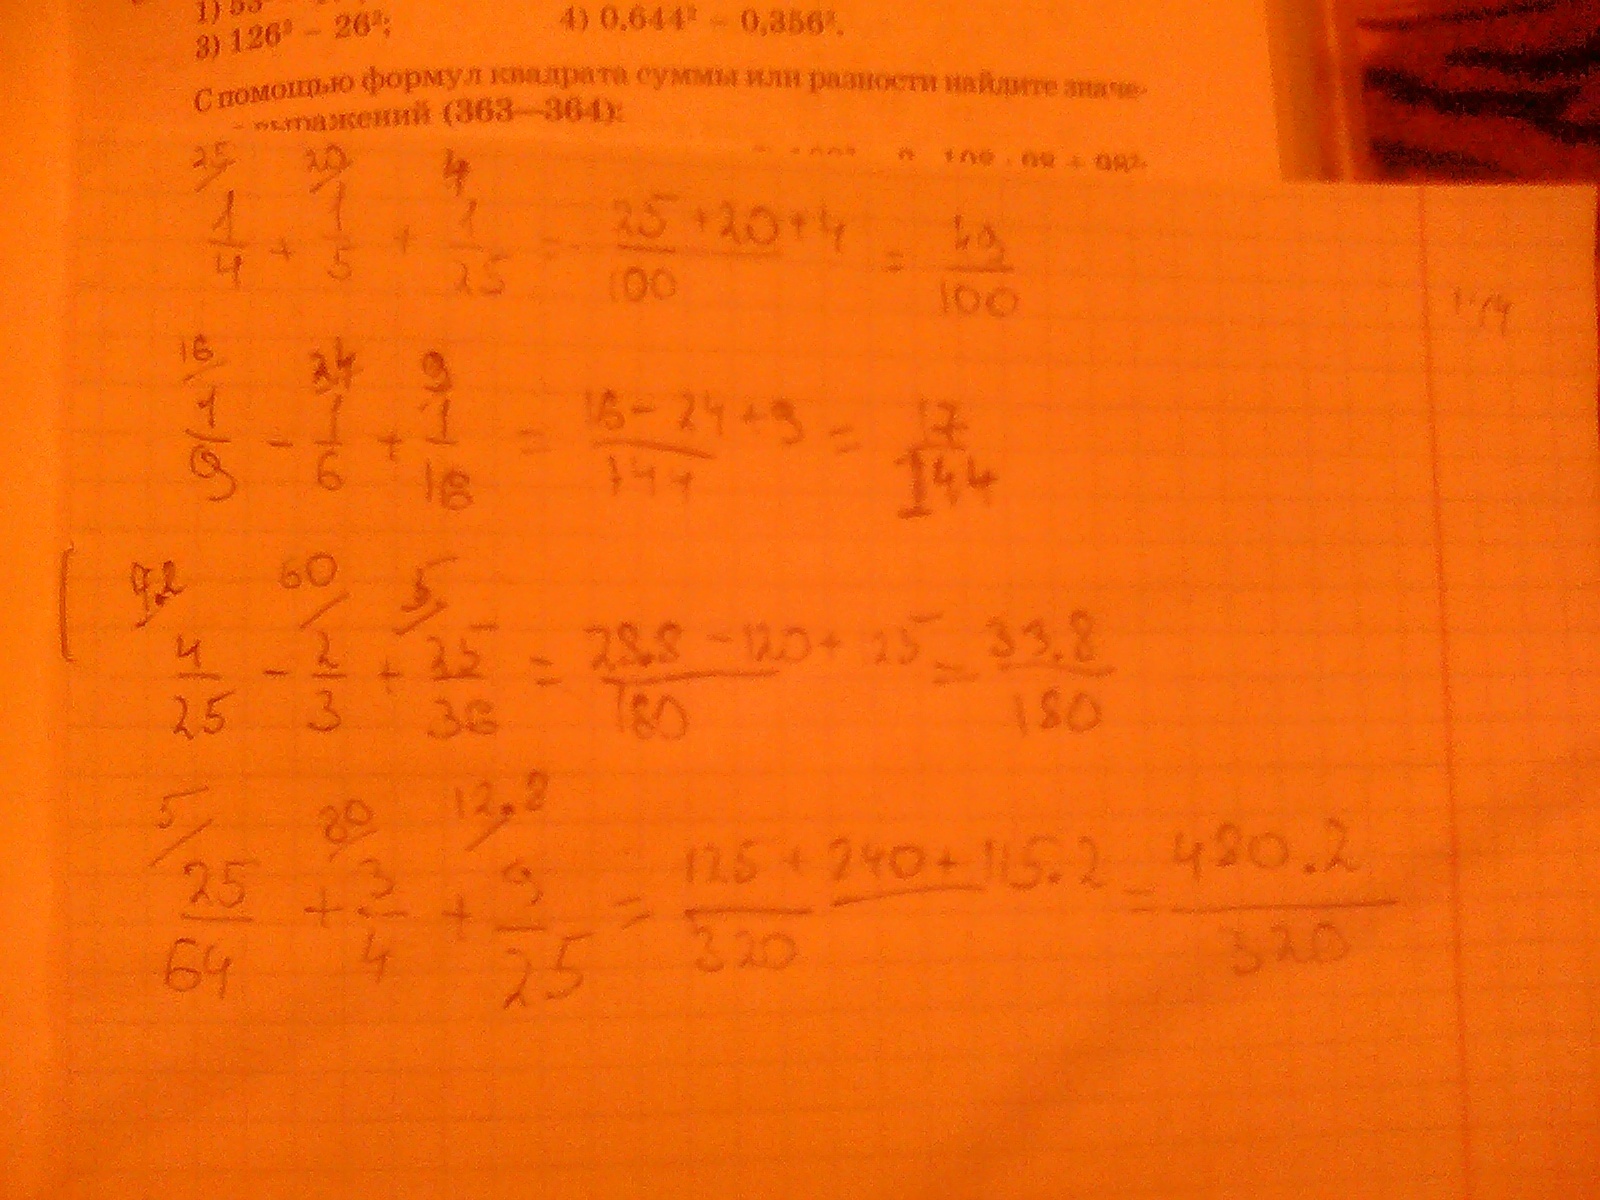 1) 53
3) 126² – 26²; 4) 0,644² – 0,356².
С помощью формул квадрата суммы или разности найдите значе-
выражений (363—364):
25 20 4
1/4 + 1/5 + 1/25 = 25+20+4/100 = 49/100
16 24 9
1/9 - 1/6 + 1/16 = 16-24+9/144 = 17/144
7.2 60 5
4/25 - 2/3 + 25/36 = 28.8-120+125/180 = 33.8/180
5 80 12.8
25/64 + 3/4 + 9/25 = 125+240+115.2/320 = 480.2/320